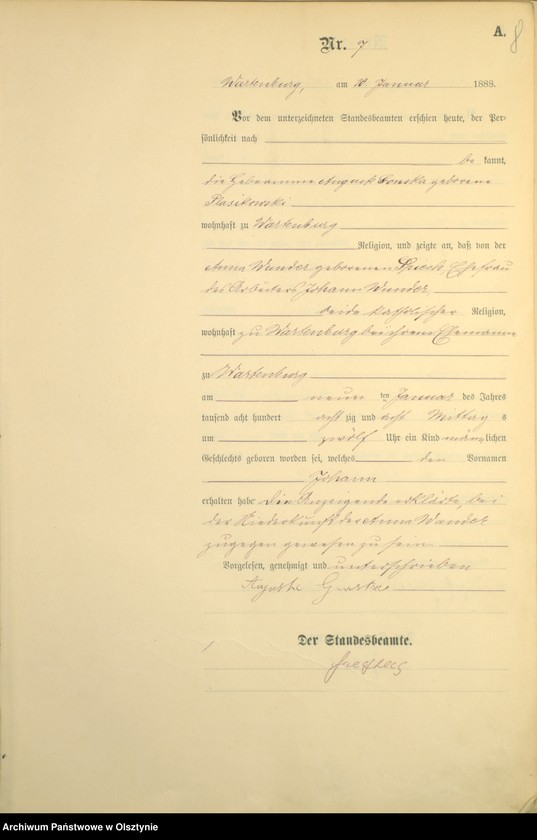 A.
8
Nr. 7
Wartenburg, am 10. Januar 1888.
Vor dem unterzeichneten Standesbeamten erschien heute, der Per-
sönlichkeit nach
be kannt,
die Hebeamme August geborene
wohnhaft zu Wartenburg
Religion, und zeigte an, daß von der
Anna Wunder geborenen Ehefrau
des Arbeiters Johann Wunder,
beide katholischer Religion,
wohnhaft zu Wartenburg bei ihrem Ehemanne
zu Wartenburg
am neun ten Januar des Jahres
tausend acht hundert acht zig und acht Mittag s
um zwölf Uhr ein Kind männlichen
Geschlechts geboren worden sei, welches den Vornamen
Johann
erhalten habe Die Anzeigende erklärte, bei
der Niederkunft der Anna Wunder
zugegen gewesen zu sein.
Vorgelesen, genehmigt und unterschrieben
Auguste
Der Standesbeamte.
Archiwum Państwowe w Olsztynie